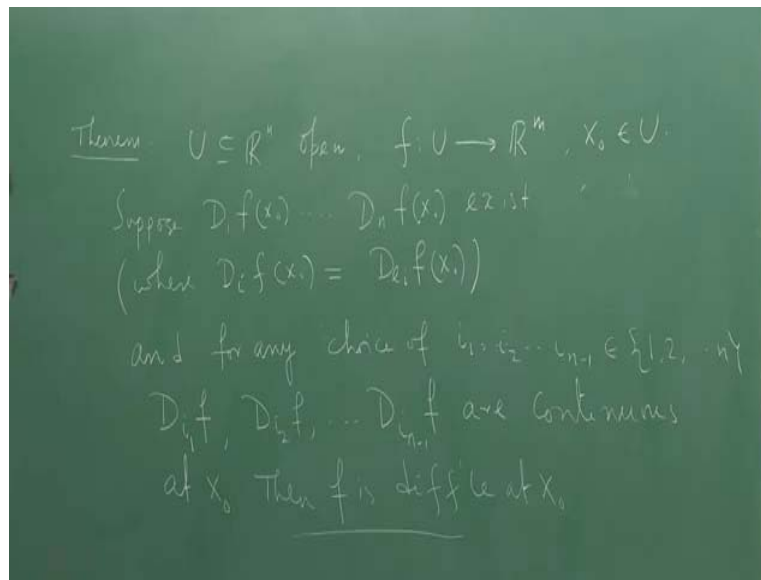 Theorem. U ⊆ ℝⁿ open, f : U → ℝᵐ, x₀ ∈ U.
Suppose D₁f(x₀) .... Dₙf(x₀) exist
(where Dᵢf(x₀) = D_{eᵢ}f(x₀))
and for any choice of i₁, i₂ ... i_{n-1} ∈ {1,2, .. n}
D_{i₁}f, D_{i₂}f, ... D_{i_{n-1}}f are continuous
at x₀ Then f is diff'ble at x₀